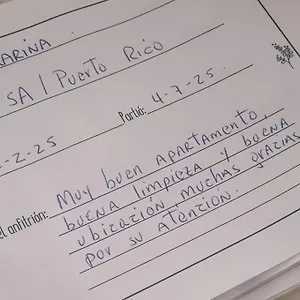 KARINA
SA / Puerto Rico
-2-25 Partió: 4-7-25.
el anfitrión: Muy buen APARTAMENTO,
buena limpieza y buena
ubicación, muchas gracias
por su Atención.